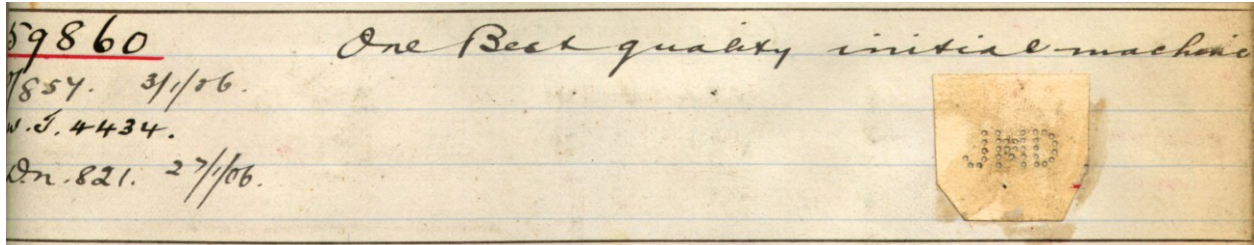 59860 One Best quality initial machine
7/857. 3/1/06.
W.J. 4434.
D.n. 821. 27/1/06.